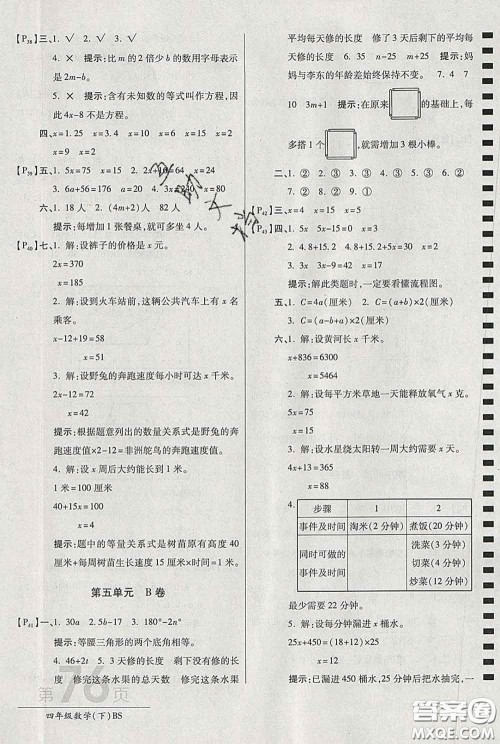 【P₃₈】三、1. √ 2. √ 3. ×
4. × 提示:比 2m 少 b 的数用字母表示是 2m-b。
5. × 提示:含有未知数的等式叫作方程,因此 4x-8 不是方程。
四、x=1.25 x=18 x=40 x=90
x=9 x=2
【P₃₉】五、1. 5x=75 2. 2x+10=64 x=27
3. 6a+56=176 a=20 4. 3x=240 x=80
六、1. 18 人 2. (4m+2)人 82 人
提示:每增加 1 张餐桌,就可多坐 4 人。
【P₄₀】七、1. 解:设裤子的价格是 x 元。
2x=370
x=185
2. 解:设到火车站前,这辆公共汽车上有 x 名乘客。
x-12+19=58
x=51
3. 解:设野兔的奔跑速度每小时可达 x 千米。
2x-12=72
x=42
提示:根据题意列出的数量关系式是野兔的奔跑速度×2-12=非洲鸵鸟的奔跑速度。
4. 解:设 x 周后大约能长到 1 米。
1 米=100 厘米
40+15x=100
x=4
提示:题中的等量关系式是树苗原有高度 40 厘米+每周树苗长高 15 厘米×周数=1 米。
第五单元 B 卷
【P₄₁】一、1. 30a 2. 5b-17 3. 180°-2n°
提示:等腰三角形的两个底角相等。
4. 46+2t 5. 3 天修的长度 剩下没有修的长度 修完这条水渠的总天数 修完这条水渠
第76页
四年级数学(下)BS
平均每天修的长度 修了 3 天后剩下的平均每天修的长度 6. x 提示:妈妈与李东的年龄差始终保持不变。 7. 4 7
10 3m+1 提示:在原来的基础上,每多搭 1 个,就要增加 3 根小棒。
二、1. ② 2. ② 3. ③ 4. ① 5. ①
【P₄₂】三、x=4 x=15 x=50
【P₄₃】四、1. 5x 5x-15 x=9
2. x+15 (x+15)×2 x=30
提示:解此类题时,一定要看懂流程图。
五、1. C=4a(厘米) 2. C=(a+b)×2(厘米)
3. C=(a-b+a)×2(厘米)
六、1. 解:设黄河长 x 千米。
x+836=6300
x=5464
2. 解:设每平方米草地一天能释放氧气 x 克。
5x=75
x=15
3. 解:设水星绕太阳转一周大约需要 x 天。
4x+13=365
x=88
4.
步骤 1 2
事件及时间 淘米(2 分钟) 煮饭(20 分钟)
同时可做的事件及时间 洗菜(3 分钟)
切菜(4 分钟)
炒菜(12 分钟)
最少需要 22 分钟。
5. 解:设每分钟漏进 x 桶水。
25x+450=(18+14)×25
x=14
提示:已漏进 25 分钟水后,把水抽完,一